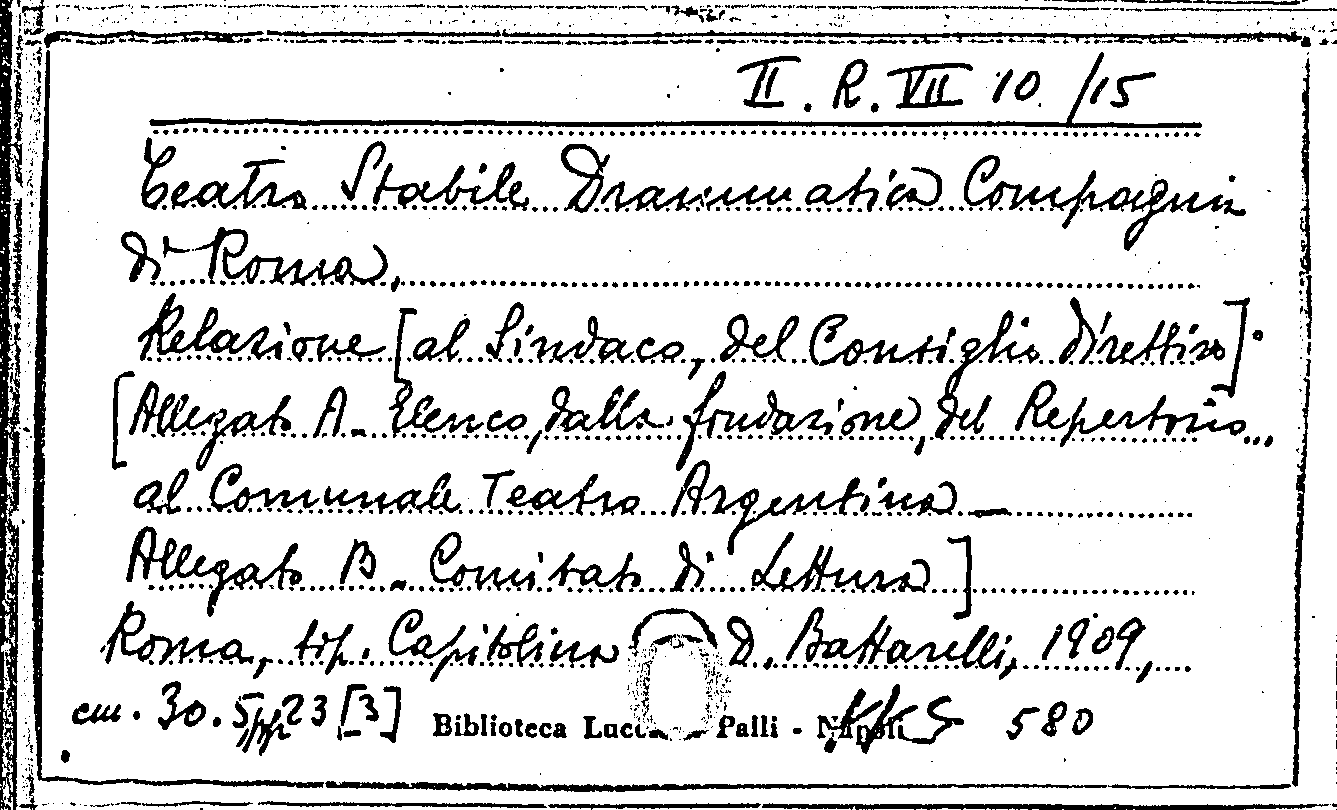 II. R. VII 10 /15
Teatro Stabile Drammatica Compagnia
di Roma.
Relazione [al Sindaco, del Consiglio direttivo].
[Allegato A - Elenco, dalla fondazione, del Repertorio...
al Comunale Teatro Argentina —
Allegato B - Comitato di Lettura]
Roma, tip. Capitolina D. Battarelli, 1909,
cm. 30.5, pp. 23 [3] Biblioteca Lucc Palli - Napoli 580